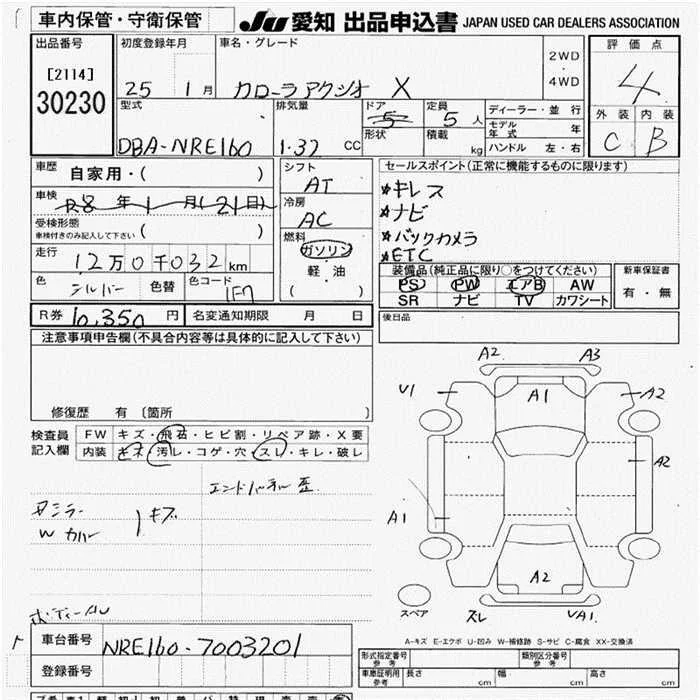 車内保管・守衛保管 JU 愛知 出品申込書 JAPAN USED CAR DEALERS ASSOCIATION
出品番号 初度登録年月 車名・グレード 2WD・4WD 評価点
[2114] 25 1月 カローラアクシオ X 4
30230
型式 排気量 ドア 定員 ディーラー・並行 外装 内装
DBA-NRE160 1.32 CC 5 5人 モデル年式 年 C B
形状 積載 kg ハンドル 左・右
車歴 自家用・( ) シフト AT セールスポイント(正常に機能するものに限ります)
車検 R8年1月(21日) 冷房 AC ★キレス
受検形態 ( ) ★ナビ
車検付きのみ記入して下さい 燃料 ガソリン ★バックカメラ
走行 12万0千032km 軽・油 ★ETC
色 シルバー 色替 色コード 1F7 ( )
装備品(純正品に限り○をつけてください) 新車保証書
PS PW エアB AW 有・無
SR ナビ TV カワシート
R券 10,350円 名変通知期限 月 日 後日品
注意事項申告欄(不具合内容等は具体的に記入して下さい)
修復歴 有〔箇所 〕
検査員 FW キズ・飛石・ヒビ割・リペア跡・X要
記入欄 内装 キズ・汚レ・コゲ・穴・スレ・キレ・破レ
A2 A3
U1 A1 A2
A2
A1
A2
スペア スレ UA1.
エンドパネル 歪
ミラー キズ
W カバー
A-キズ E-エクボ U-凹み W-補修跡 S-サビ C-腐食 XX-交換済
車台番号 NRE160-7003201
登録番号
形式指定番号 参考 類別区分番号 参考
車庫証明用 参考 長さ cm 幅 cm 高さ cm